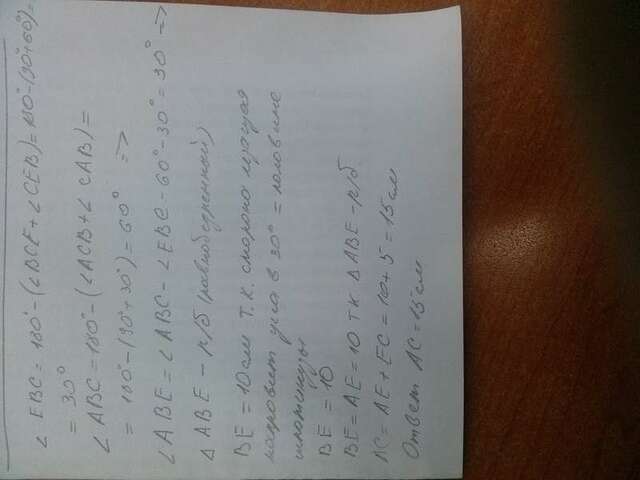 ∠ EBC = 180° - (∠BCE + ∠CEB) = 180° - (90° + 60°) =
= 30°
∠ ABC = 180° - (∠ACB + ∠CAB) =
= 180° - (90° + 30°) = 60° =>
∠ABE = ∠ABC - ∠EBC - 60° - 30° = 30° =>
△ ABE - р/б (равнобедренный)
BE = 10 см т.к. сторона лежащая
напротив угла в 30° = половине
гипотинузы
BE = 10
BE = AE = 10 тк △ABE - р/б
AC = AE + EC = 10 + 5 = 15 см
Ответ AC = 15 см